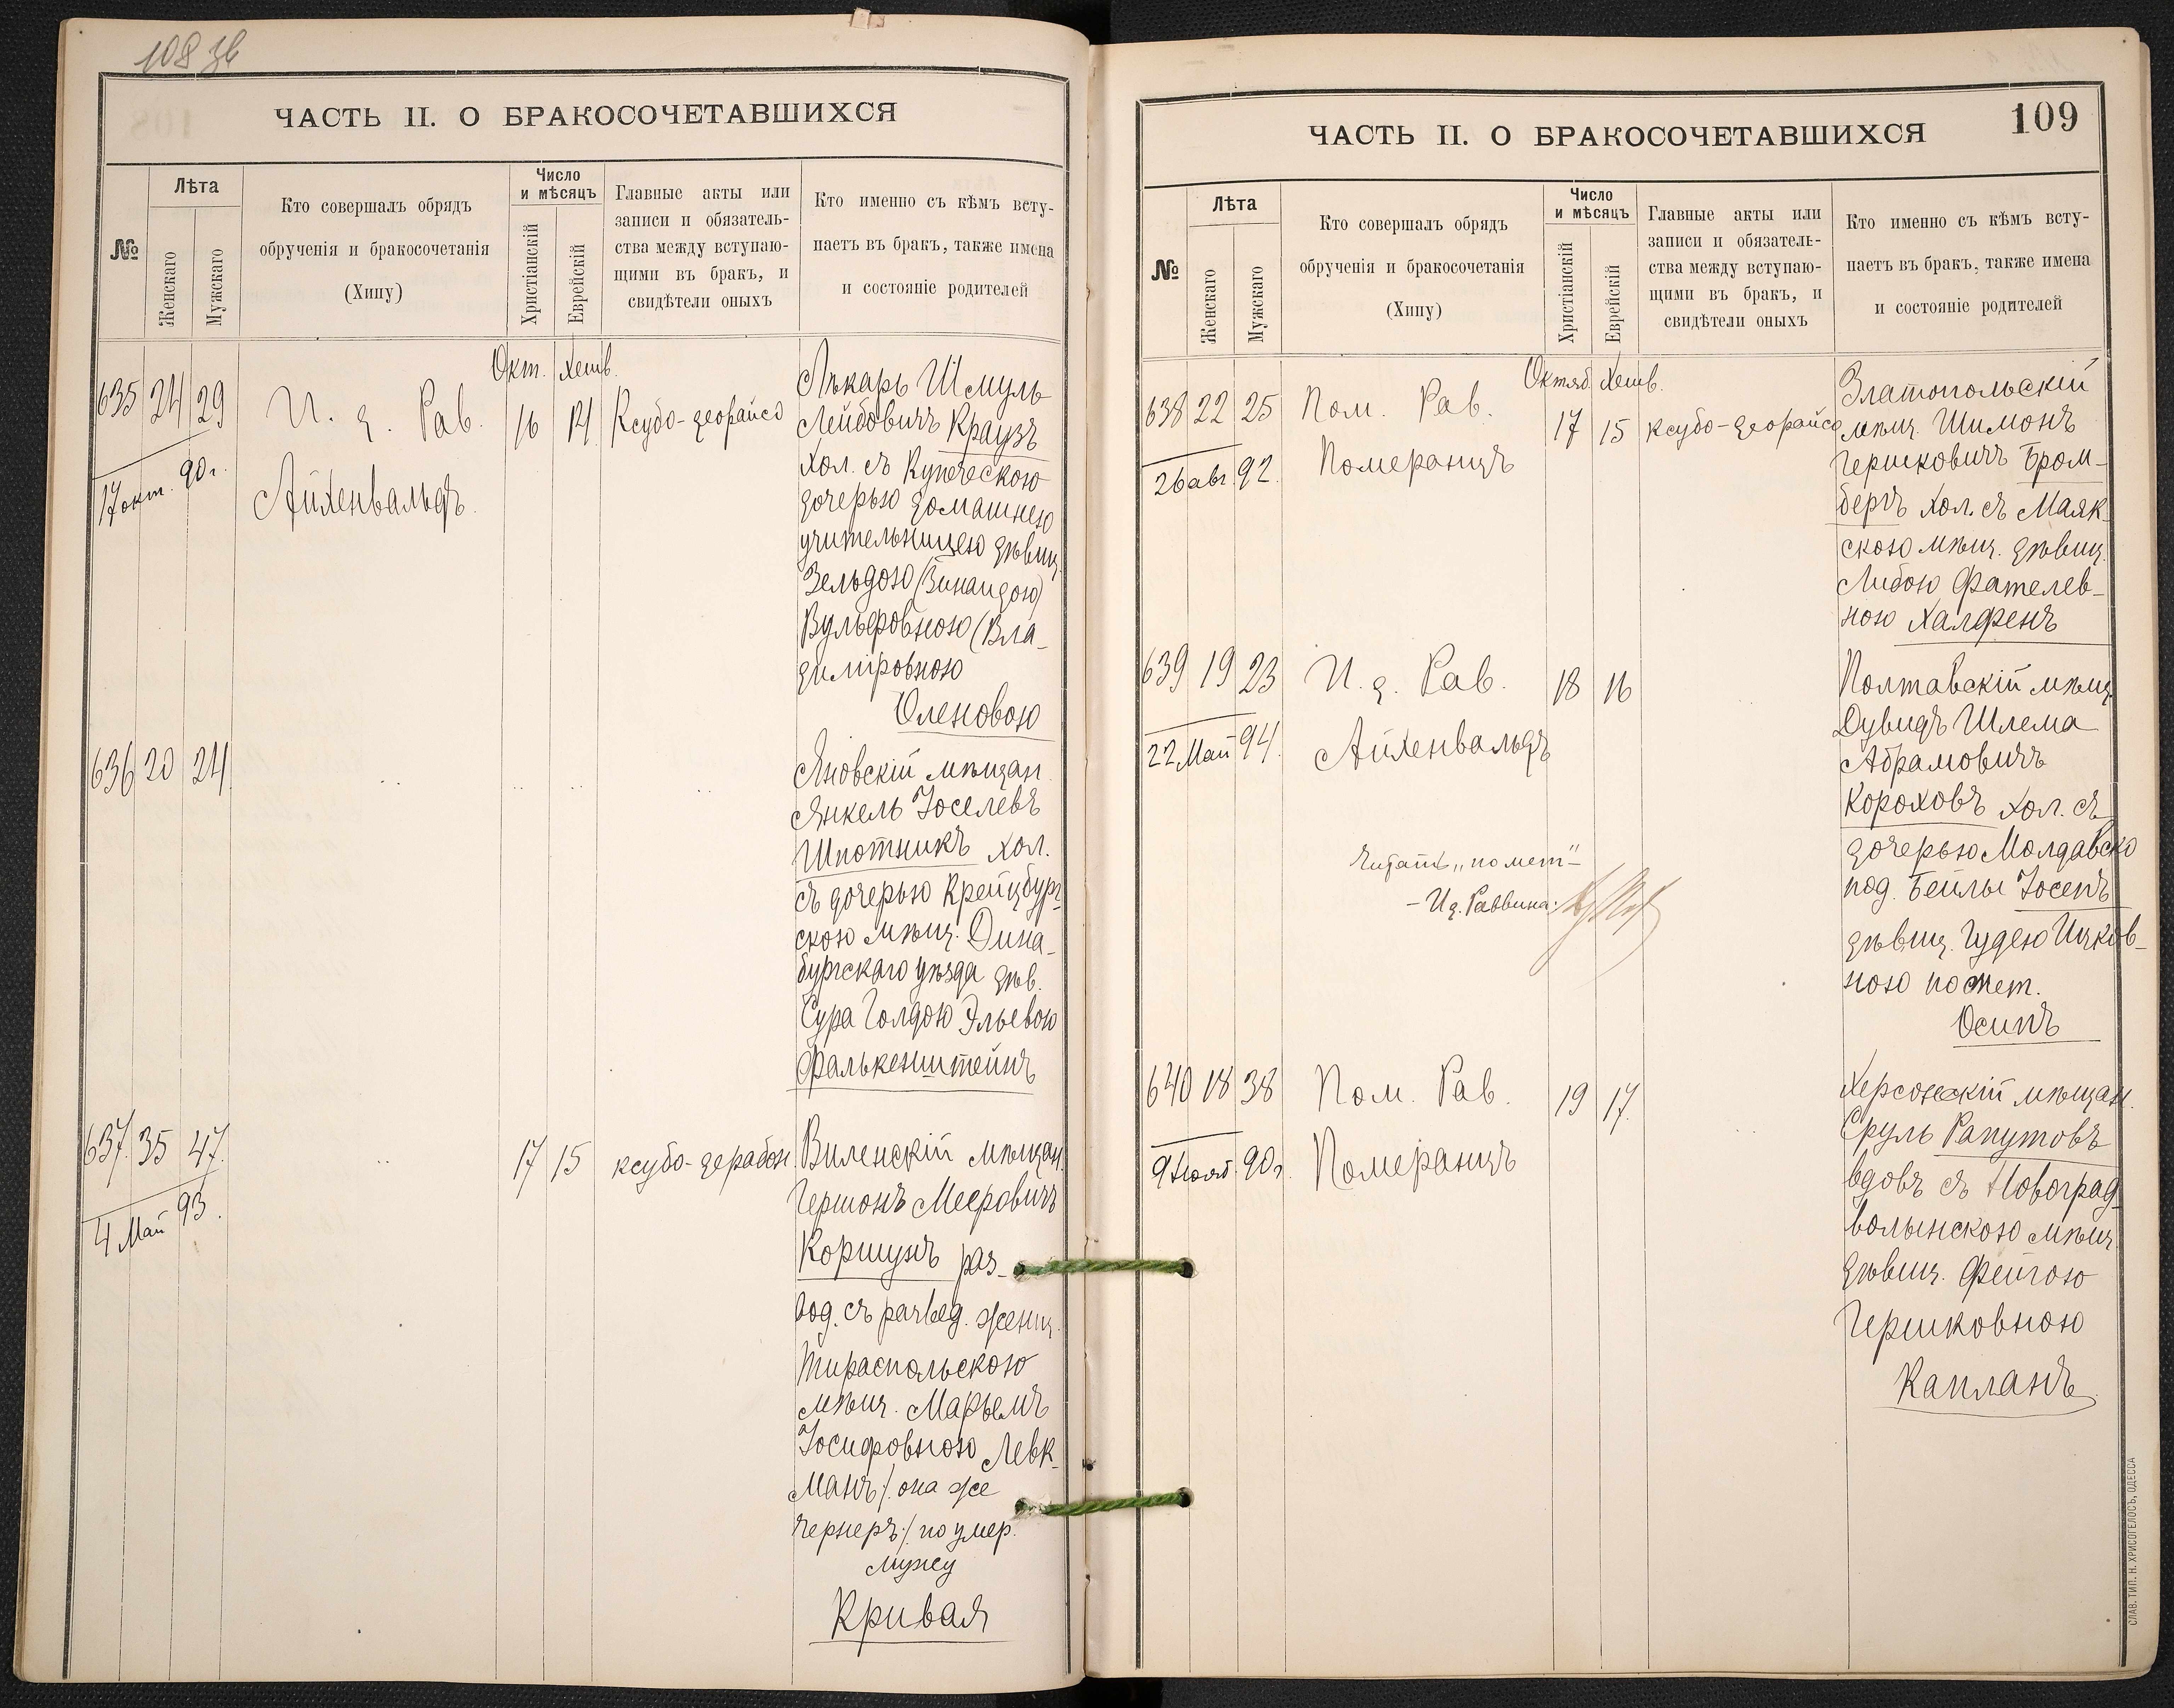 108 зв
ЧАСТЬ II. О БРАКОСОЧЕТАВШИХСЯ
№
Лѣта
Женскаго
Мужскаго
Кто совершалъ обрядъ
обрученія и бракосочетанія
(Хипу)
Число
и мѣсяцъ
Христіанскій
Еврейскій
Главные акты или
записи и обязатель-
ства между вступаю-
щими въ бракъ, и
свидѣтели оныхъ
Кто именно съ кѣмъ всту-
паетъ въ бракъ, также имена
и состояніе родителей
Окт. Хешв.
635 24 29 И. д. Рав. 16 14 Ксубо-деорайсо
17 окт. 90 г.
Айхенвальдъ
Лѣкарь Шмуль
Лейбовичъ Краузъ
хол. съ Купеческою
дочерью домашнею
учительницею дѣвиц.
Зельдою (Зинаидою)
Вульфовною (Вла-
диміровною
Оленовою
636 20 24 .. .. .. ..
Яновскій мѣщан.
Янкель Іоселевъ
Шпотникъ хол.
съ дочерью Крейцбург-
скою мѣщ. Дина-
бургскаго уѣзда дѣв.
Сура Голдою Эльевою
Фалькенштейнъ
637. 35 47. .. 17 15 ксубо-дерабон.
4 Май 93.
Виленскій мѣщан.
Гершонъ Мееровичъ
Коршунъ раз-
вод. съ развед. женщ.
Тираспольскою
мѣщ. Марьемъ
Іосифовною Левк-
манъ /: она же
Чернеръ :/ по умер.
мужу
Кривая
109
ЧАСТЬ II. О БРАКОСОЧЕТАВШИХСЯ
№
Лѣта
Женскаго
Мужскаго
Кто совершалъ обрядъ
обрученія и бракосочетанія
(Хипу)
Число
и мѣсяцъ
Христіанскій
Еврейскій
Главные акты или
записи и обязатель-
ства между вступаю-
щими въ бракъ, и
свидѣтели оныхъ
Кто именно съ кѣмъ всту-
паетъ въ бракъ, также имена
и состояніе родителей
Октяб. Хешв.
638 22 25 Пом. Рав. 17 15 ксубо-деорайсо
26 авг. 92.
Померанцъ
Златопольскій
мѣщ. Шимонъ
Гершковичъ Бром-
бергъ хол. съ Маяк-
скою мѣщ. дѣвиц.
Либою Фателев-
ною Халфенъ
639 19 23 И. д. Рав. 18 16
22 Май 94.
Айхенвальдъ
Читать „по мет“-
- И д. Раввина:
Полтавскій мѣщ.
Дувидъ Шлема
Абрамовичъ
Короховъ хол. съ
дочерью Молдавско
под. Бейлы Іосепъ
дѣвиц. Гудею Ицков-
ною по мет.
Осипъ
640 18 38 Пом. Рав. 19 17.
9 Нояб. 90 г.
Померанцъ
Херсонскій мѣщан.
Сруль Рапутовъ
вдовъ съ Новоград-
волынскою мѣщ.
дѣвиц. Фейгою
Гершковною
Капланъ
СЛАВ. ТИП. Н. ХРИСОГЕЛОСЪ, ОДЕССА